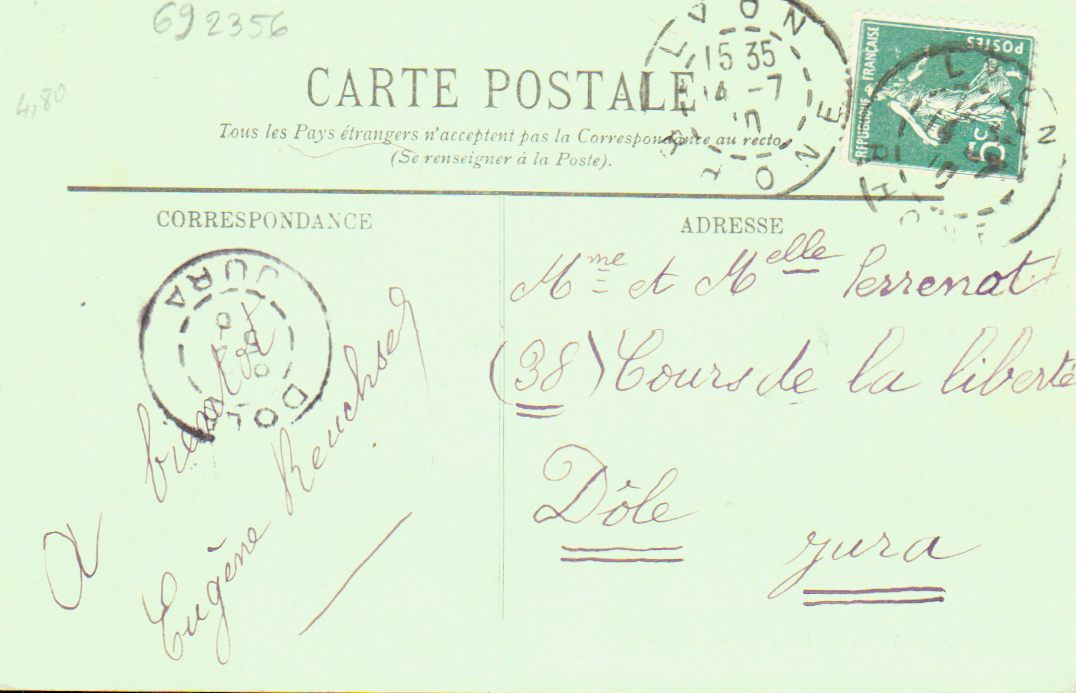 692356
4,80
CARTE POSTALE
Tous les Pays étrangers n'acceptent pas la Correspondance au recto
(Se renseigner à la Poste).
LYON
15 35
14 -7
RHONE
RÉPUBLIQUE FRANÇAISE
POSTES
5c
CORRESPONDANCE
ADRESSE
DOLE
JURA
A bientot
Eugène
Mme et Melle Perrenot
(38) Cours de la liberté
Dôle
Jura